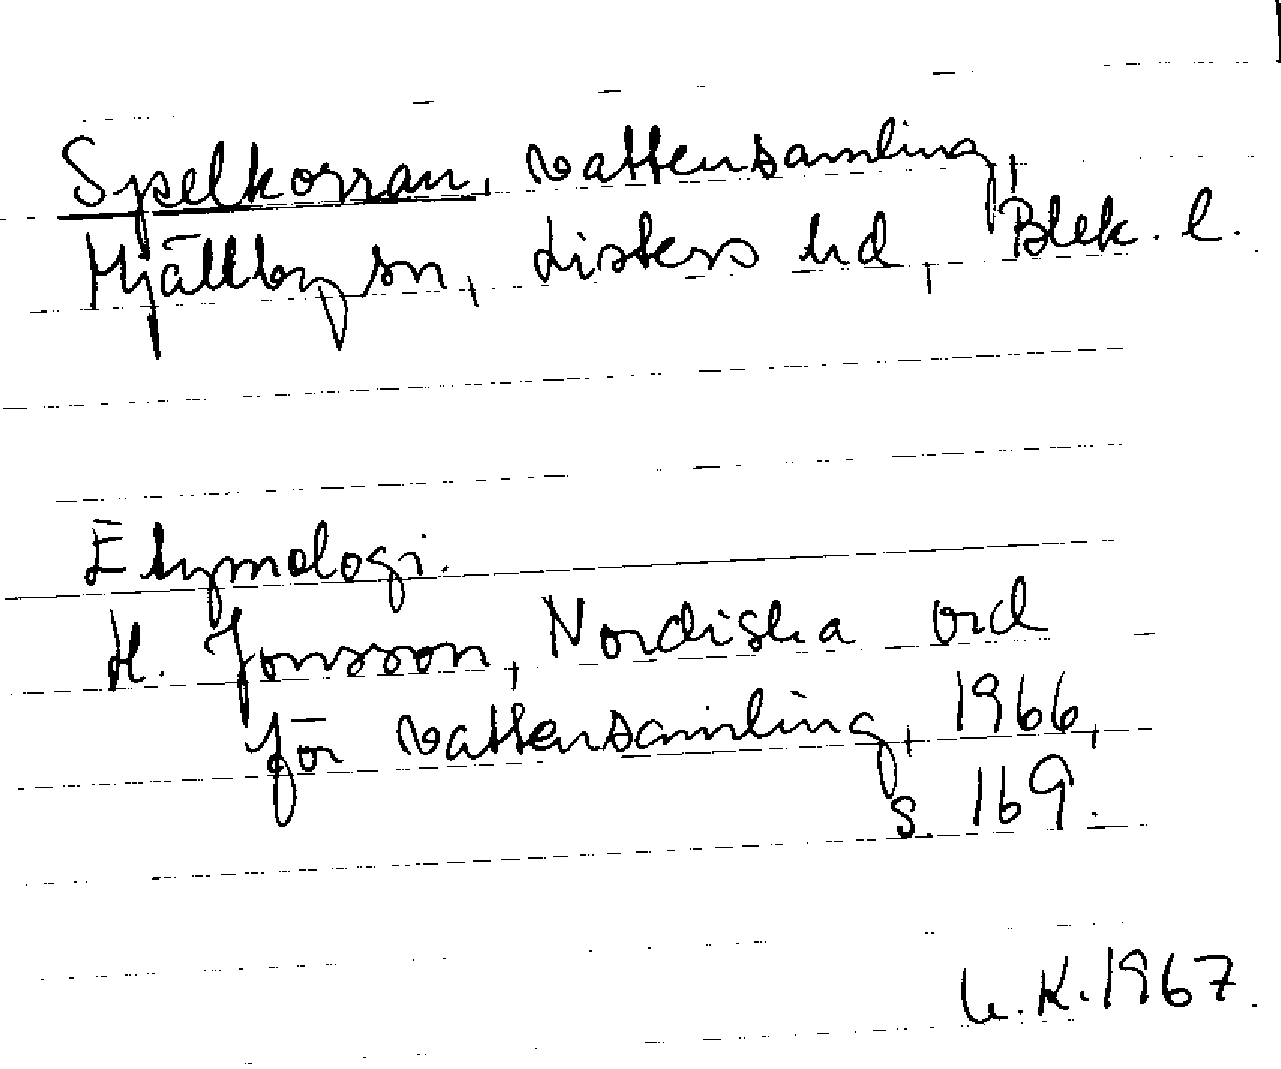 Spelkorran, vattensamling,
Mjällby sn, Listers hd, Blek. l.
Etymologi.
H. Jonsson, Nordiska ord
för vattensamling, 1966,
s. 169.
K. 1967.